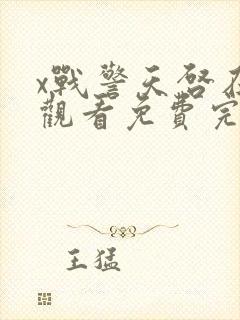 x戰警天啓在
觀看免費完
王猛